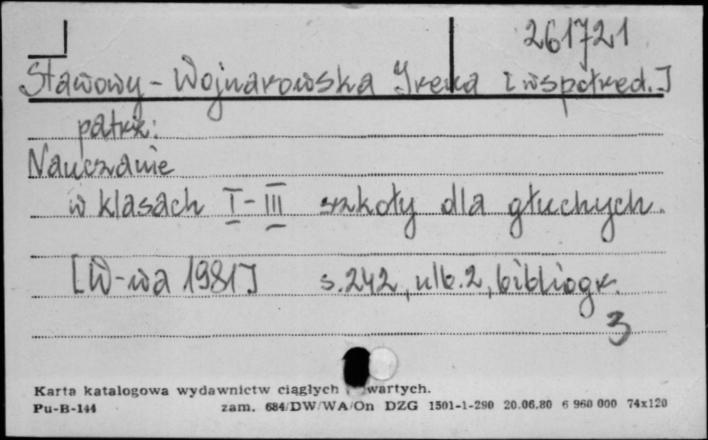 261721
Stawowy-Wojnarowska Irena [współred.]
patrz:
Nauczanie
w klasach I-III szkoły dla głuchych.
[W-wa 1981] s. 242, nlb. 2, bibliogr.
3
Karta katalogowa wydawnictw ciągłych wartych.
Pu-B-144 zam. 684/DW/WA/On DZG 1501-1-290 20.06.80 6 960 000 74x120